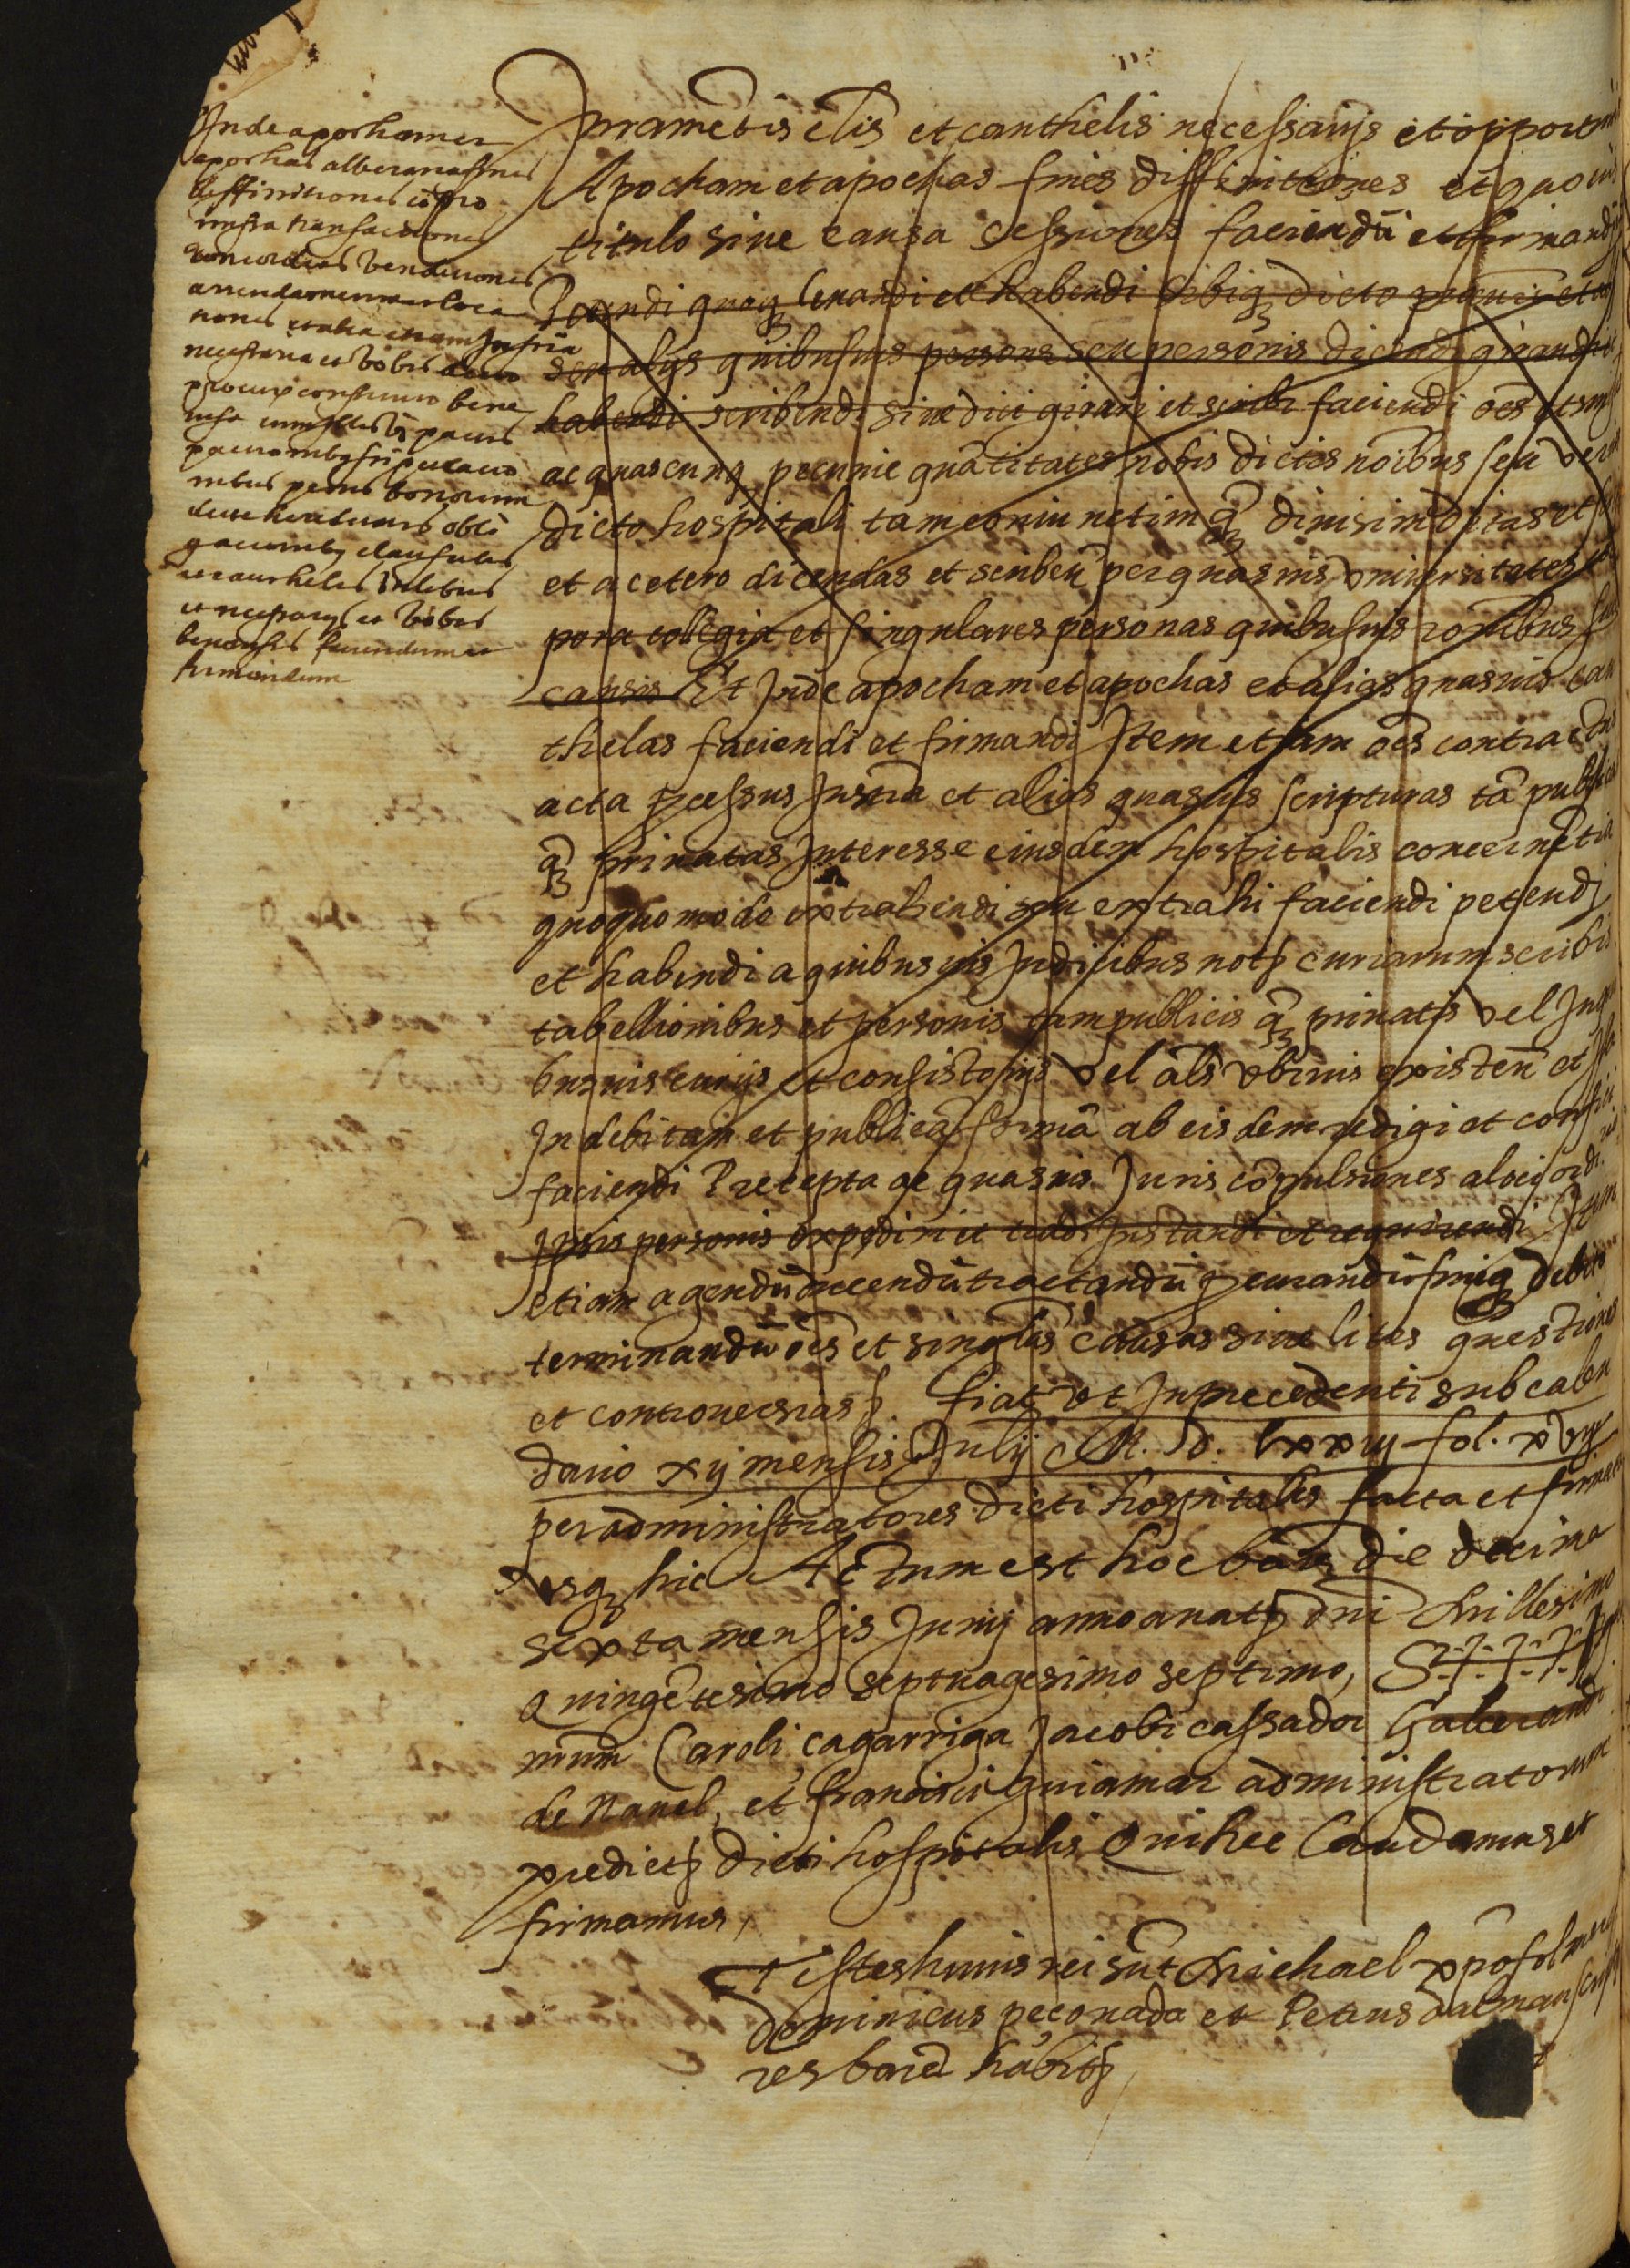 Inde apocham et
apochas alberana fines
diffinitiones et pro
missa transactiones
concordias venditiones
arrendamenta loca
tiones et alia etiam Instrū
necessaria et vobis
procurī consimo bene
visa cum illis vz pactis
pactionibȝ stipulatio
nibus penis bonorum
obli
gacionibȝ clausulis
et cauthelis talibus
et necessarijs et vobis
benevisis faciendum et
firmandum
Iuramētis cl̄is et cauthelis necessarijs et opportunis
Apocham et apochas fines diffinitiones et quovis
titulo sive causa cessiones faciendū et firmandū
Petendi quoqȝ levandi et habendi sibiqȝ dicto
seu alijs quibusvis persone seu personis dicendi girandi et
habendi scribendi sive dici girari et scribi faciendi oēs et sing
ac quascunqȝ pecunie quātitates nobis dictis noībus seu veri
dicto hospitali tam coniunctim qȝ divisim dictas et scrip
et a cetero dicendas et scribeñ per quasvis vniversitates cor
pora collegia et singulares personas quibusvis rōnibus seu
causis Et Inde apocham et apochas et alias quasvis cau
thelas faciendi et firmandi Item etiam oēs contractus
acta pcessus Instrā et alias quasvis scripturas tā publicas
qȝ privatas Interesse eiusdem hospitalis concernētia
quoquomodo extrahendi seu extrahi faciendi petendi
et habendi a quibusvis Iudicibus notȝ curiarum scribis
tabellionibus et personis tam publicis qȝ privatis vel In qui
busvis curijs et consistorijs vel als vbivis existeñ et Illa
In debitam et publicā formā ab eisdem redigi et confici
faciendi Precepta ac quasvis Iuris cōpulsiones
Ipsis personis expediri et tradi Instandi et requirendi Item
etiam agendū ducendū tractandū pcurandū finiqȝ debito
terminandū oēs et singlas causas sive lites questiones
et controversias ȝ. fiat vt In precedenti sub calen
dario xij mensis Julij M. D. lxxiij fol. xvij
per administratores dicti hospitalis facta et firmata
vsqȝ hic Actum est hoc barȝ die decima
sexta mensis Junij anno a natȝ dnī Millesimo
Quingētesimo septuagesimo septimo, S+++++
nrum Caroli çagarriga Jacobi cassador Galcerandi
de Navel, et francisci guiamar administratorum
predictȝ dicti hospitalis Qui hec laudamus et
firmamus,
Testes huius rei sūt Michael xpōfol
dominicus peçonada et Petrus dalmau scripto
res barcⁿ habitȝ